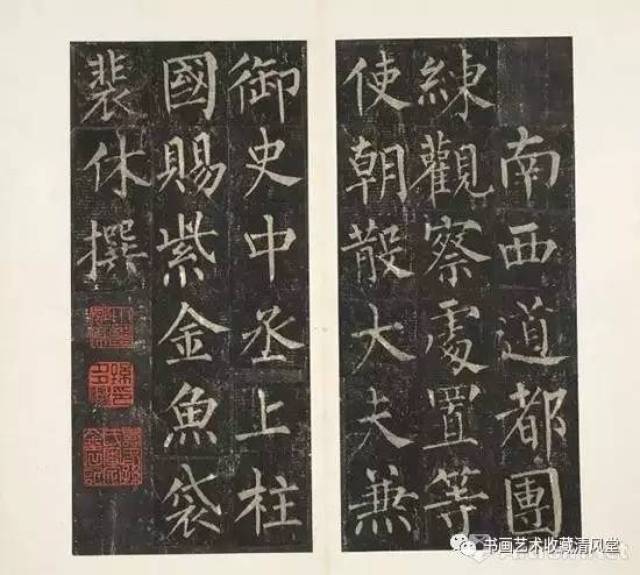 南西道都團
練觀察處置等
使朝散大夫兼
御史中丞上柱
國賜紫金魚袋
裴休撰
书画艺术收藏清风堂